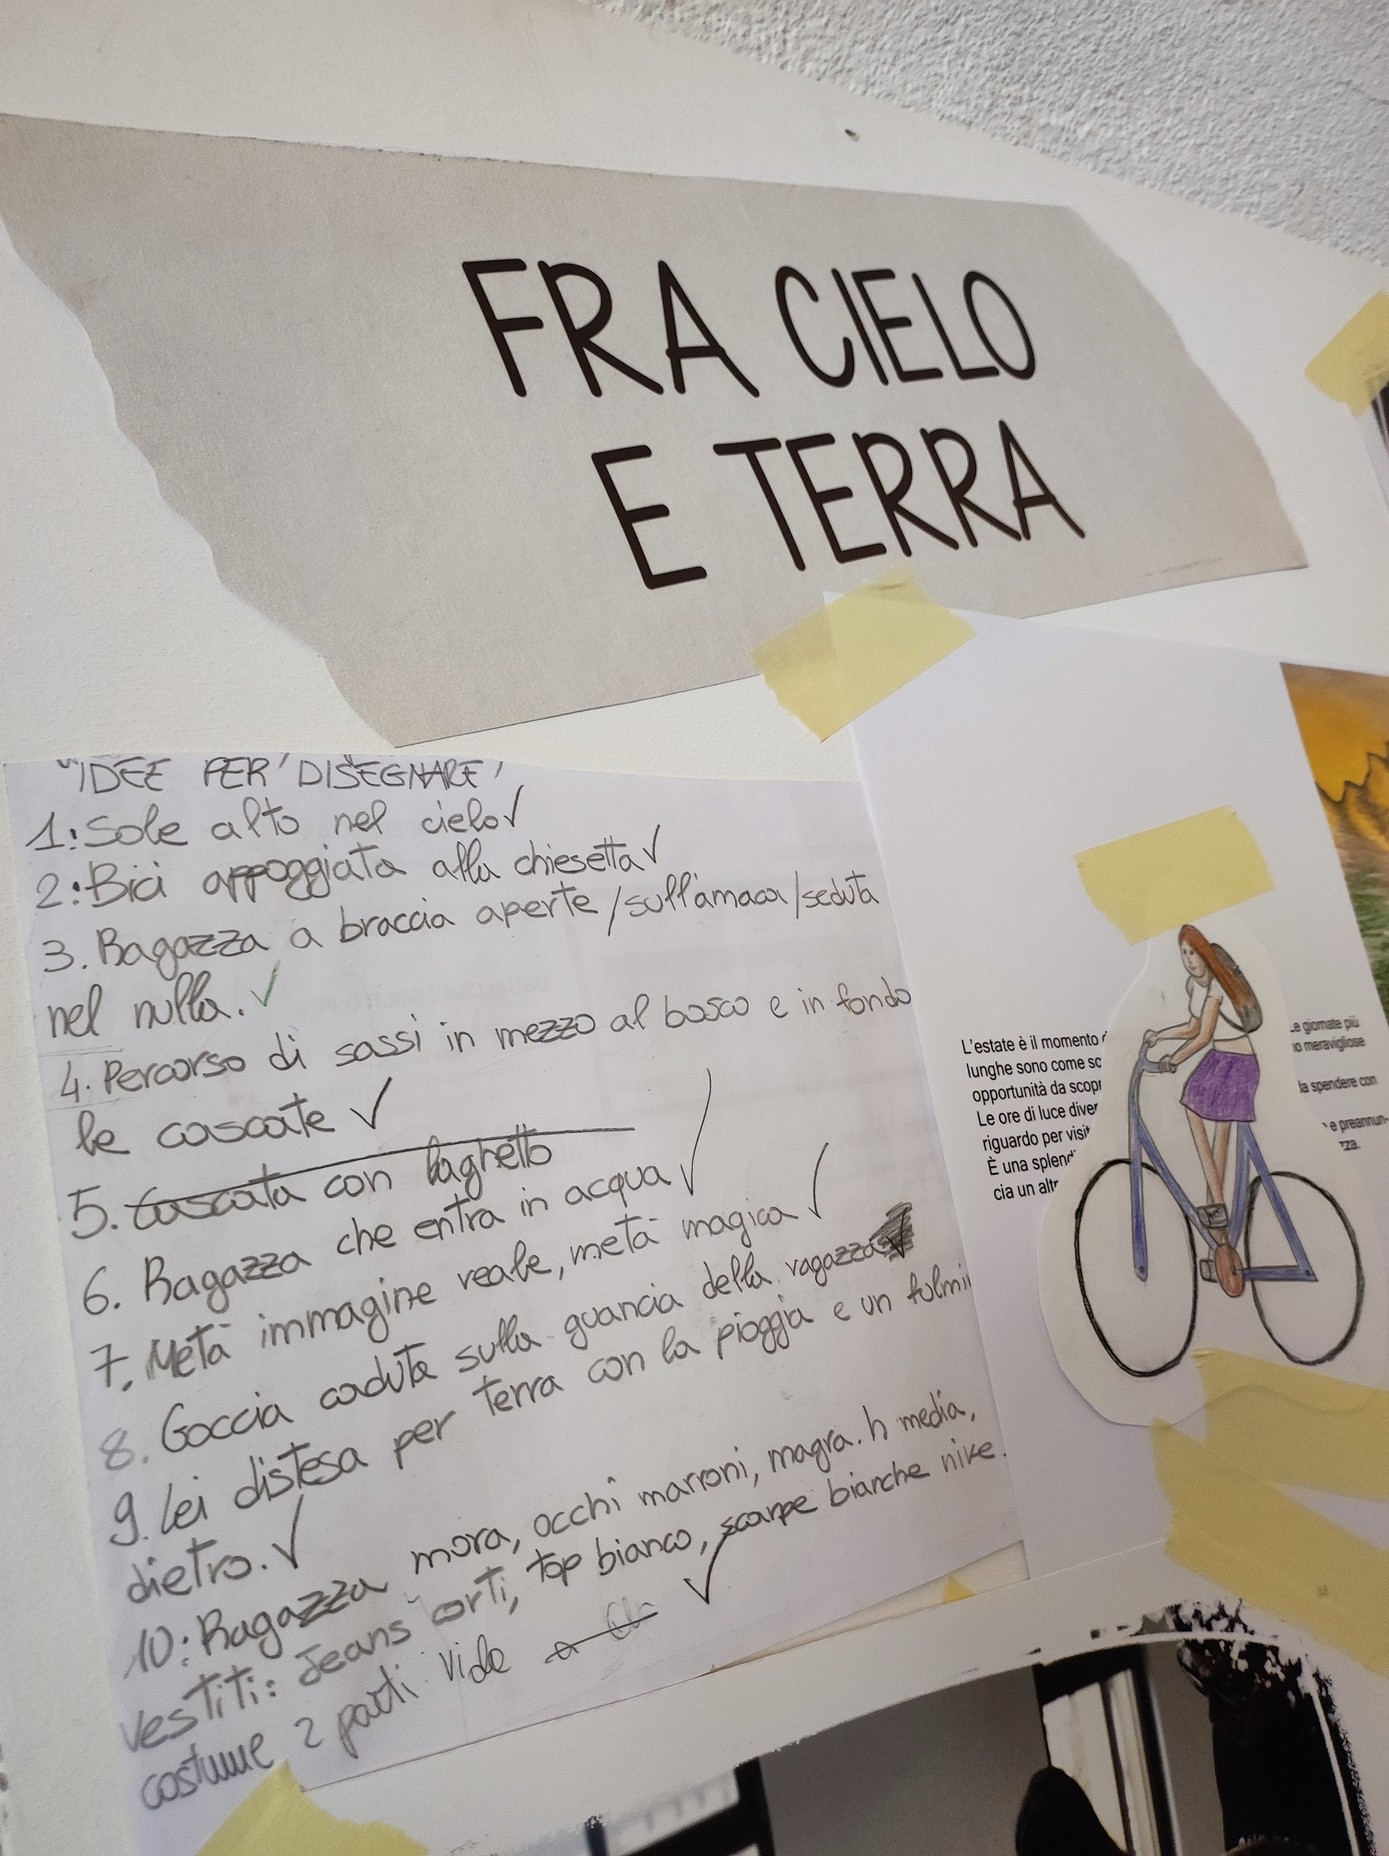 FRA CIELO
E TERRA
"IDEE PER DISEGNARE"
1: Sole alto nel cielo ✓
2: Bici appoggiata alla chiesetta ✓
3. Ragazza a braccia aperte/sull'amaca/seduta
nel nulla. ✓
4. Percorso di sassi in mezzo al bosco e in fondo
le cascate ✓
5. Cascata con laghetto
6. Ragazza che entra in acqua ✓
7. Metà immagine reale, metà magica ✓
8. Goccia caduta sulla guancia della ragazza ✓
9. Lei distesa per terra con la pioggia e un fulmi
dietro. ✓
10: Ragazza mora, occhi marroni, magra. h media,
vestiti: Jeans corti, top bianco, scarpe bianche nike.
costume 2 parti viola ✓
L'estate è il momento
lunghe sono come sc
opportunità da scopr
Le ore di luce diver
riguardo per visit
È una splend
cia un altr
Le giornate più
no meravigliose
da spendere con
e preannun-
zza.